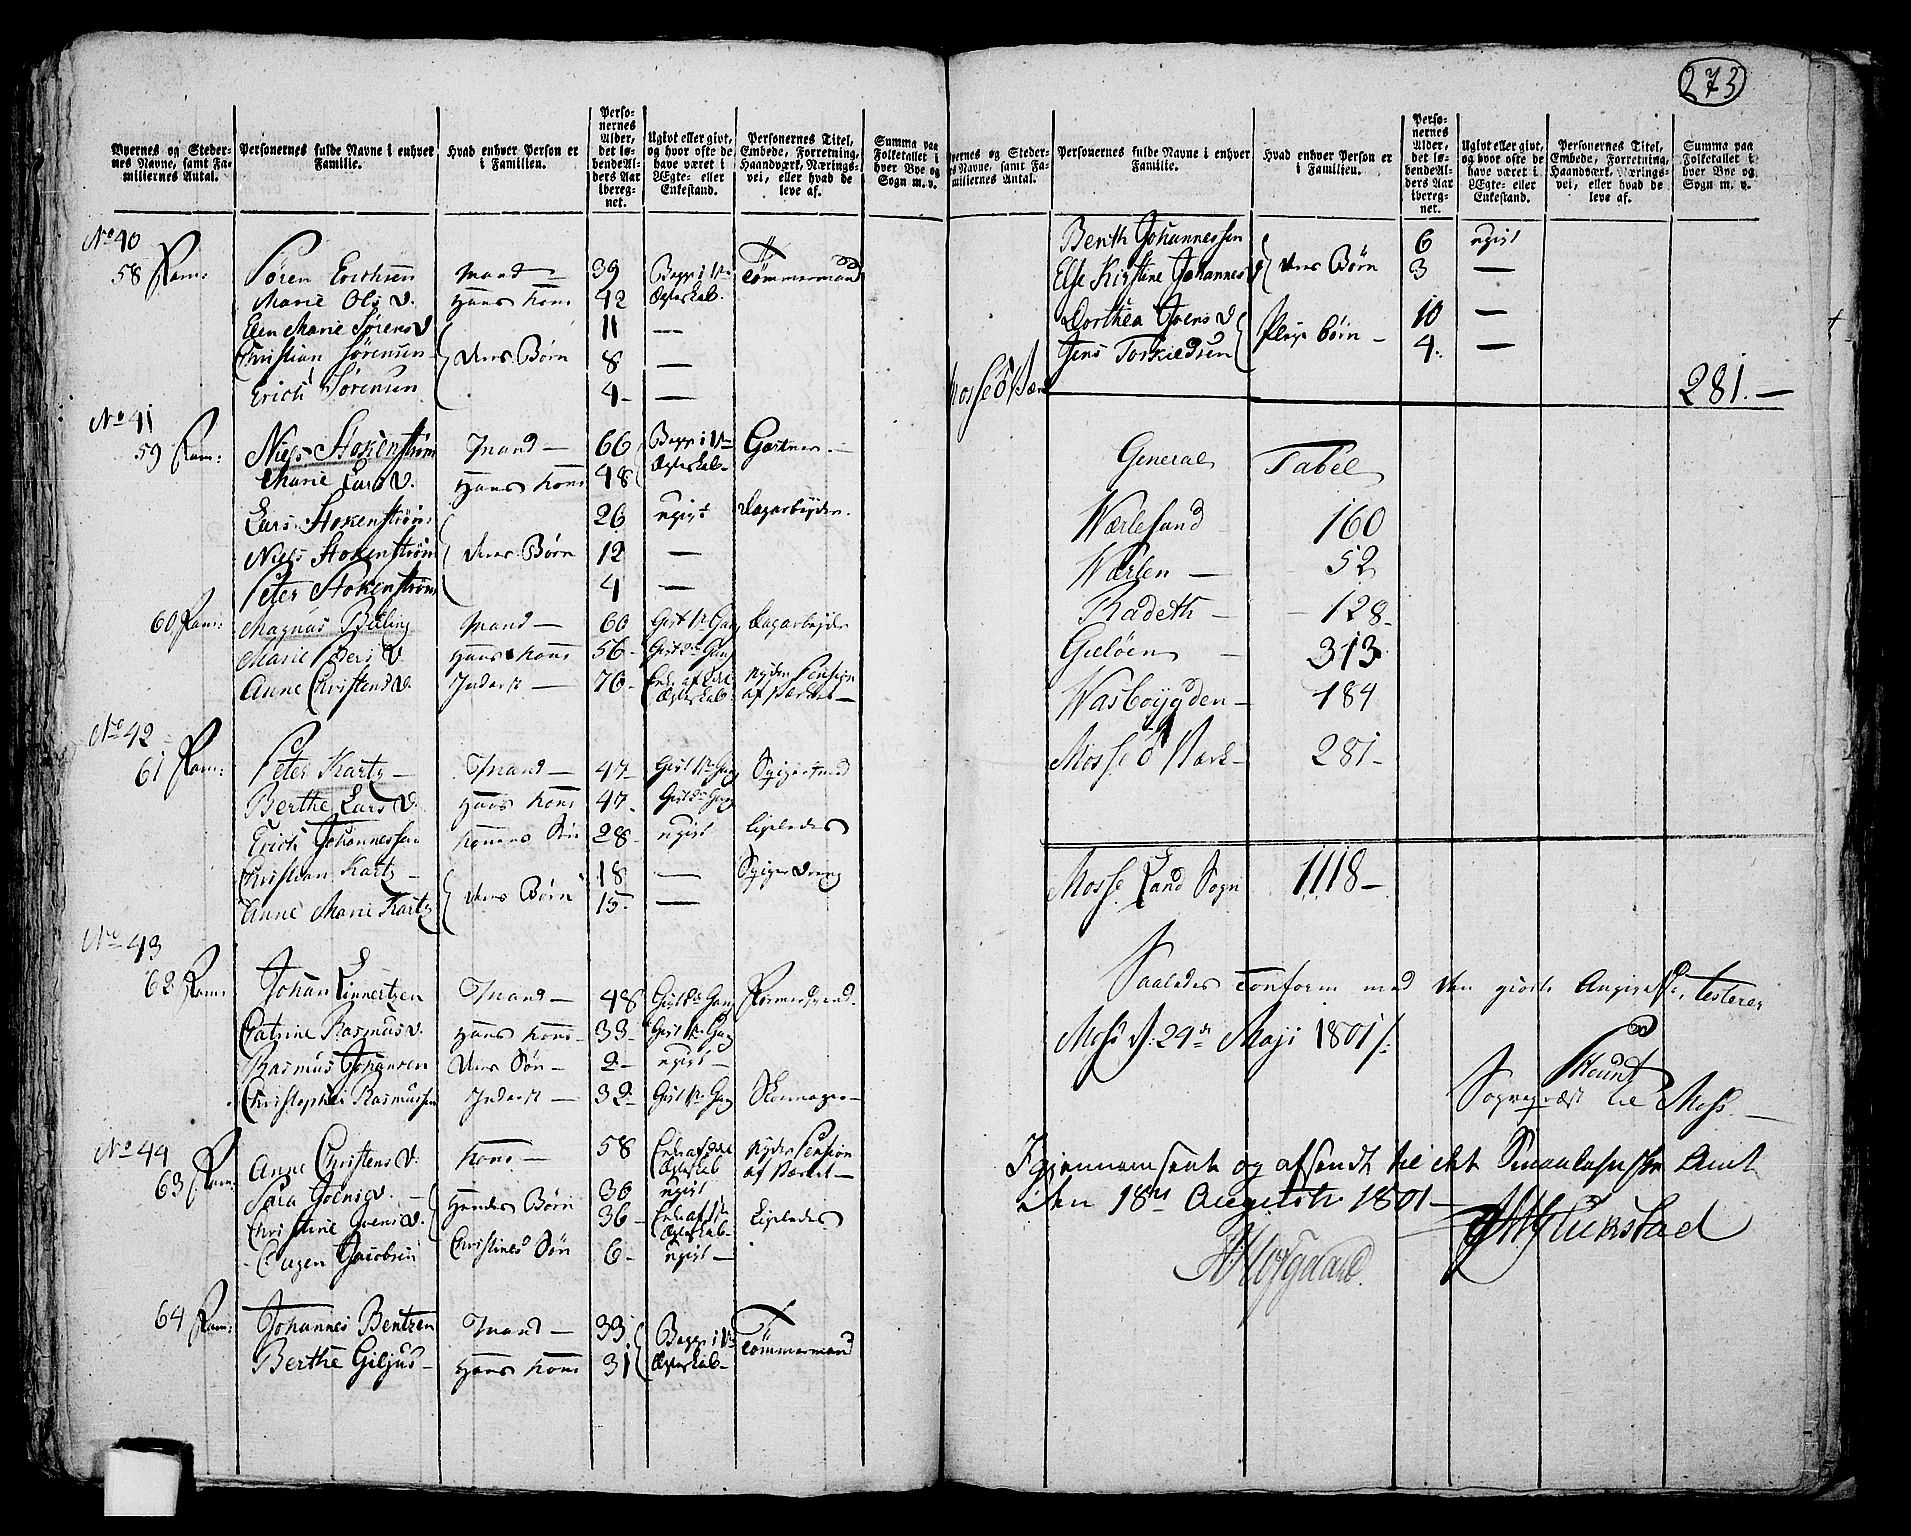 273
Byernes og Steder-
nes Navne, samt Fa-
miliernes Antal.
Personernes fulde Navne i enhver
Familie.
Hvad enhver Person er
i Familien.
Perso-
nernes
Alder,
det lø-
bende Al-
ders Aar
iberegnet.
Ugivt eller givt,
og hvor ofte de
have været i
Ægte- eller
Enkestand.
Personernes Titel,
Embede, Forretning,
Haandværk, Nærings-
vei, eller hvad de
leve af.
Summa paa
Folketallet i
hver Bye og
Sogn m. v.
No 40
58 Fam:
Søren Erichsen Mand 39 Begge i 1te Ægteskab. Tömmermand
Marie Ols D. Hans Kone 42
Elen Marie Sörens D 11 —
Christian Sörensen Deres Börn 8 —
Erich Sörensen 4 —
No 41
59 Fam:
Niels Stokenström Mand 66 Begge i 1te Ægteskab Gartner
Marie Lars D. Hans Kone 48
Lars Stokenström 26 ugivt Dagarbeyder
Niels Stokenström Deres Börn 12 —
Peter Stokenström 4 —
60 Fam:
Magnus Beling Mand 60 Gift 1te Gang Dagarbeyder
Marie Pers D Hans Kone 56 Gift Gang
Anne Christens D. Inderst 76 Enke af Ægteskab Nyder Pension af Værket
No 42
61 Fam:
Peter Kartz Mand 47 Gift 1te Gang Spigersmed
Berthe Lars D. Hans Kone 47 Gift 2den Gang
Erich Johannessen Konens Sön 28 ugivt
Christian Kartz 18 — Spiger Dreng
Anne Marie Kartz Deres Börn 15 —
No 43
62 Fam:
Johan Linnertzen Mand 48 Gift 2den Gang Formersvend
Catrine Rasmus D. Hans Kone 33 Gift 1te Gang
Rasmus Johansen Deres Sön 2 ugivt
Christopher Rasmussen Inderst 32 Gift 1te Gang Skomager
No 44
63 Fam:
Anne Christens D. Kone 58 Enke af Ægteskab Nyder Pension af Værket
Sara Joens D. 30 ugivt
Christine Joens D. Hendes Börn 36 Enke af 1te Ægteskab
Jacobsen Christines Sön 6 ugivt
64 Fam:
Johannes Bentzen Mand 33 Begge i 1te Ægteskab Tömmermand
Berthe Giljus Hans Kone 31
Byernes og Steder-
nes Navne, samt Fa-
miliernes Antal.
Personernes fulde Navne i enhver
Familie.
Hvad enhver Person er
i Familien.
Perso-
nernes
Alder,
det lø-
bende Al-
ders Aar
iberegnet.
Ugivt eller givt,
og hvor ofte de
have været i
Ægte- eller
Enkestand.
Personernes Titel,
Embede, Forretning,
Haandværk, Nærings-
vei, eller hvad de
leve af.
Summa paa
Folketallet i
hver Bye og
Sogn m. v.
Benth Johannessen 6 ugivt
Else Kirstine Johannes D Deres Börn 3 —
Dorthea Joens D 10 —
Jens Torkieldsen Pleje börn 4 —
Mosse Værk 281.—
General Tabel
Wærlesand 160
Wærlen — 52
Radeth — 128
Gieløen — 313
Wasboÿgden — 184
Mosse Værk 281
Mosse Land Sogn 1118—
Saaledes conform med den giorte Angivelse, testerer
Moss d. 24de Maji 1801
Sogneprest til Moss
Igiennemseete og afsendt til det Smaalehnske Amt
den 18de Augusti 1801